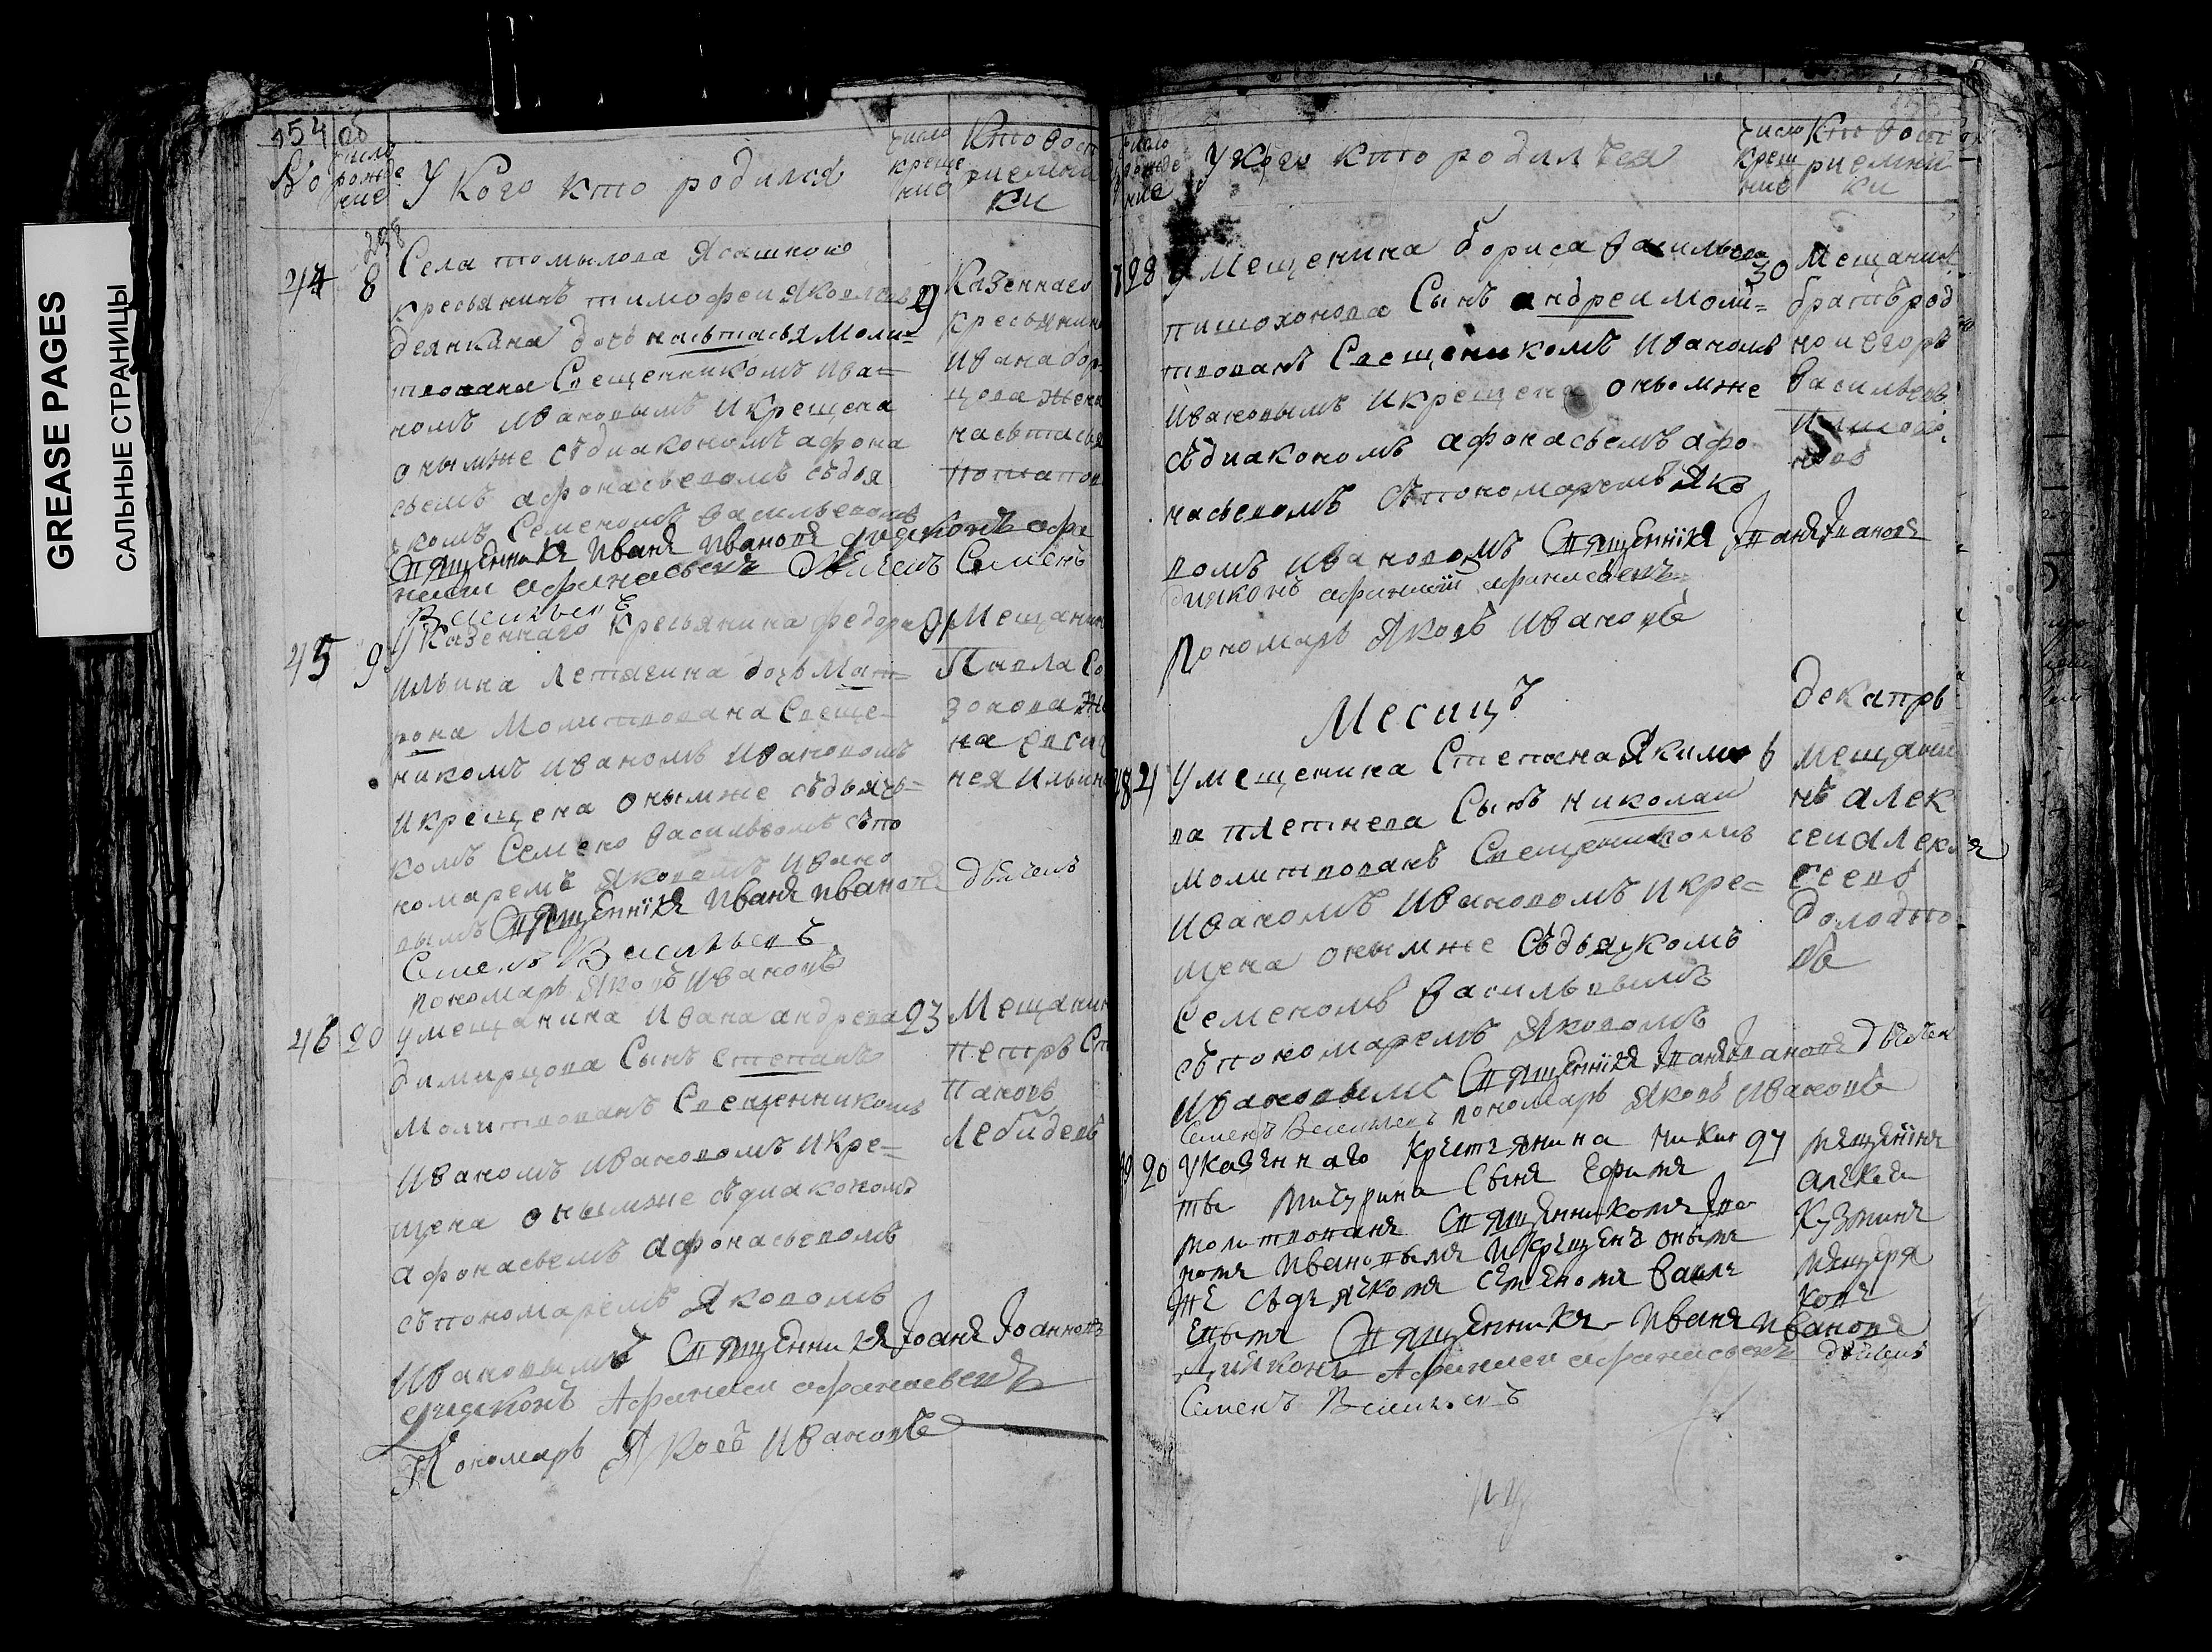 GREASE PAGES
САЛЬНЫЕ СТРАНИЦЫ
154 об
число рожде ние
У кого кто родился
число креще ние
Кто вост
риемни
ки
44 8
Села томылова Ясашного
кресьянинъ тимофеи Яковлевъ 9
деянкина дочь насьтасья Моли=
твована Свещенникомъ Ива=
номъ Ивановымъ Икрещена
онымже съдиакономъ афона
сьемъ афонасьевомъ съдья
комъ Семеномъ Васильевомъ
Священникъ Иванъ Ивановъ диаконъ афа
насии афанасьевъ дьячекъ Семенъ
Васильевъ
Казеннаго
кресьянин
Ивана бор
цова жена
насьтасья
потапов
45 9
У Казеннаго кресьянина федора
Ильина Летягина дочь Мат=
рона Молитвована Свеще=
никомъ Иваномъ Ивановомъ
Икрещена онымже съдьячь=
комъ Семено Васильвомъ съпо
номаремъ Яковомъ Ивано
вымъ Священникъ Иванъ Ивановъ дьячекъ
Семенъ Васильевъ
пономарь Яковъ Ивановъ
Мещанин
Павла Со
зонова же
на евси
нея Ильин
46 20
У мещанина Ивана андрева 23
димирцова Сынъ Степанъ
Молитвованъ Свещенникомъ
Иваномъ Ивановомъ Икре=
щена онымже съдиакономъ
афонасьемъ афонасьевомъ
съпономаремъ Яковомъ
Ивановымъ Священникъ Іоанъ Іоанновъ
диаконъ Афанасии афанасьевъ
Пономарь Яковъ Ивановъ
Мещанин
петръ Ст
пановъ
Лебидевъ
число рожде ние
У кого кто родилься
число крещ ние
Кто вост
риемни
ки
28 У Мещенина бориса Васильева 30
пишохонова Сынъ андреи Моли=
твованъ Свещеникомъ Иваномъ
Ивановымъ Икрещена онымже
съдиакономъ афонасьемъ афо
насьевомъ съпономаремъ Яко
вомъ Ивановомъ Священнікъ Іванъ Івановъ
диаконъ афанасіи афанасьевъ
Пономарь Яковъ Ивановъ
Мещанин
братъ род
нои егоръ
Васильевъ
Пишохо
новъ
Месицъ декапрь
У мещенина Степана Якимо 6
ва плетнева Сынъ николаи
молитвованъ Свещеникомъ
Иваномъ Ивановомъ Икре=
щена онымже Съдьяцкомъ
Семеномъ Васильвымъ
съпономаремъ Яковомъ
Ивановымъ Священнікъ Іванъ Івановъ дьячек
Семенъ Васильевъ пономарь Яковъ Ивановъ
мещани
нъ алек
сеи алекъя
сеевъ
долодно
въ
20 У казеннаго крестьянина Ники 27
ты мичурина Сынъ Ефимъ
молитвованъ Священникомъ Іва
номъ Ивановымъ Икрещенъ оным
же съдьячкомъ семеномъ васил
евымъ Священникъ Иванъ Ивановъ
Диаконъ Афанасеи афанасьевъ дьячекъ
Семенъ Васильевъ
мещенінъ
алексеи
Кузминъ
мещеря
ковъ